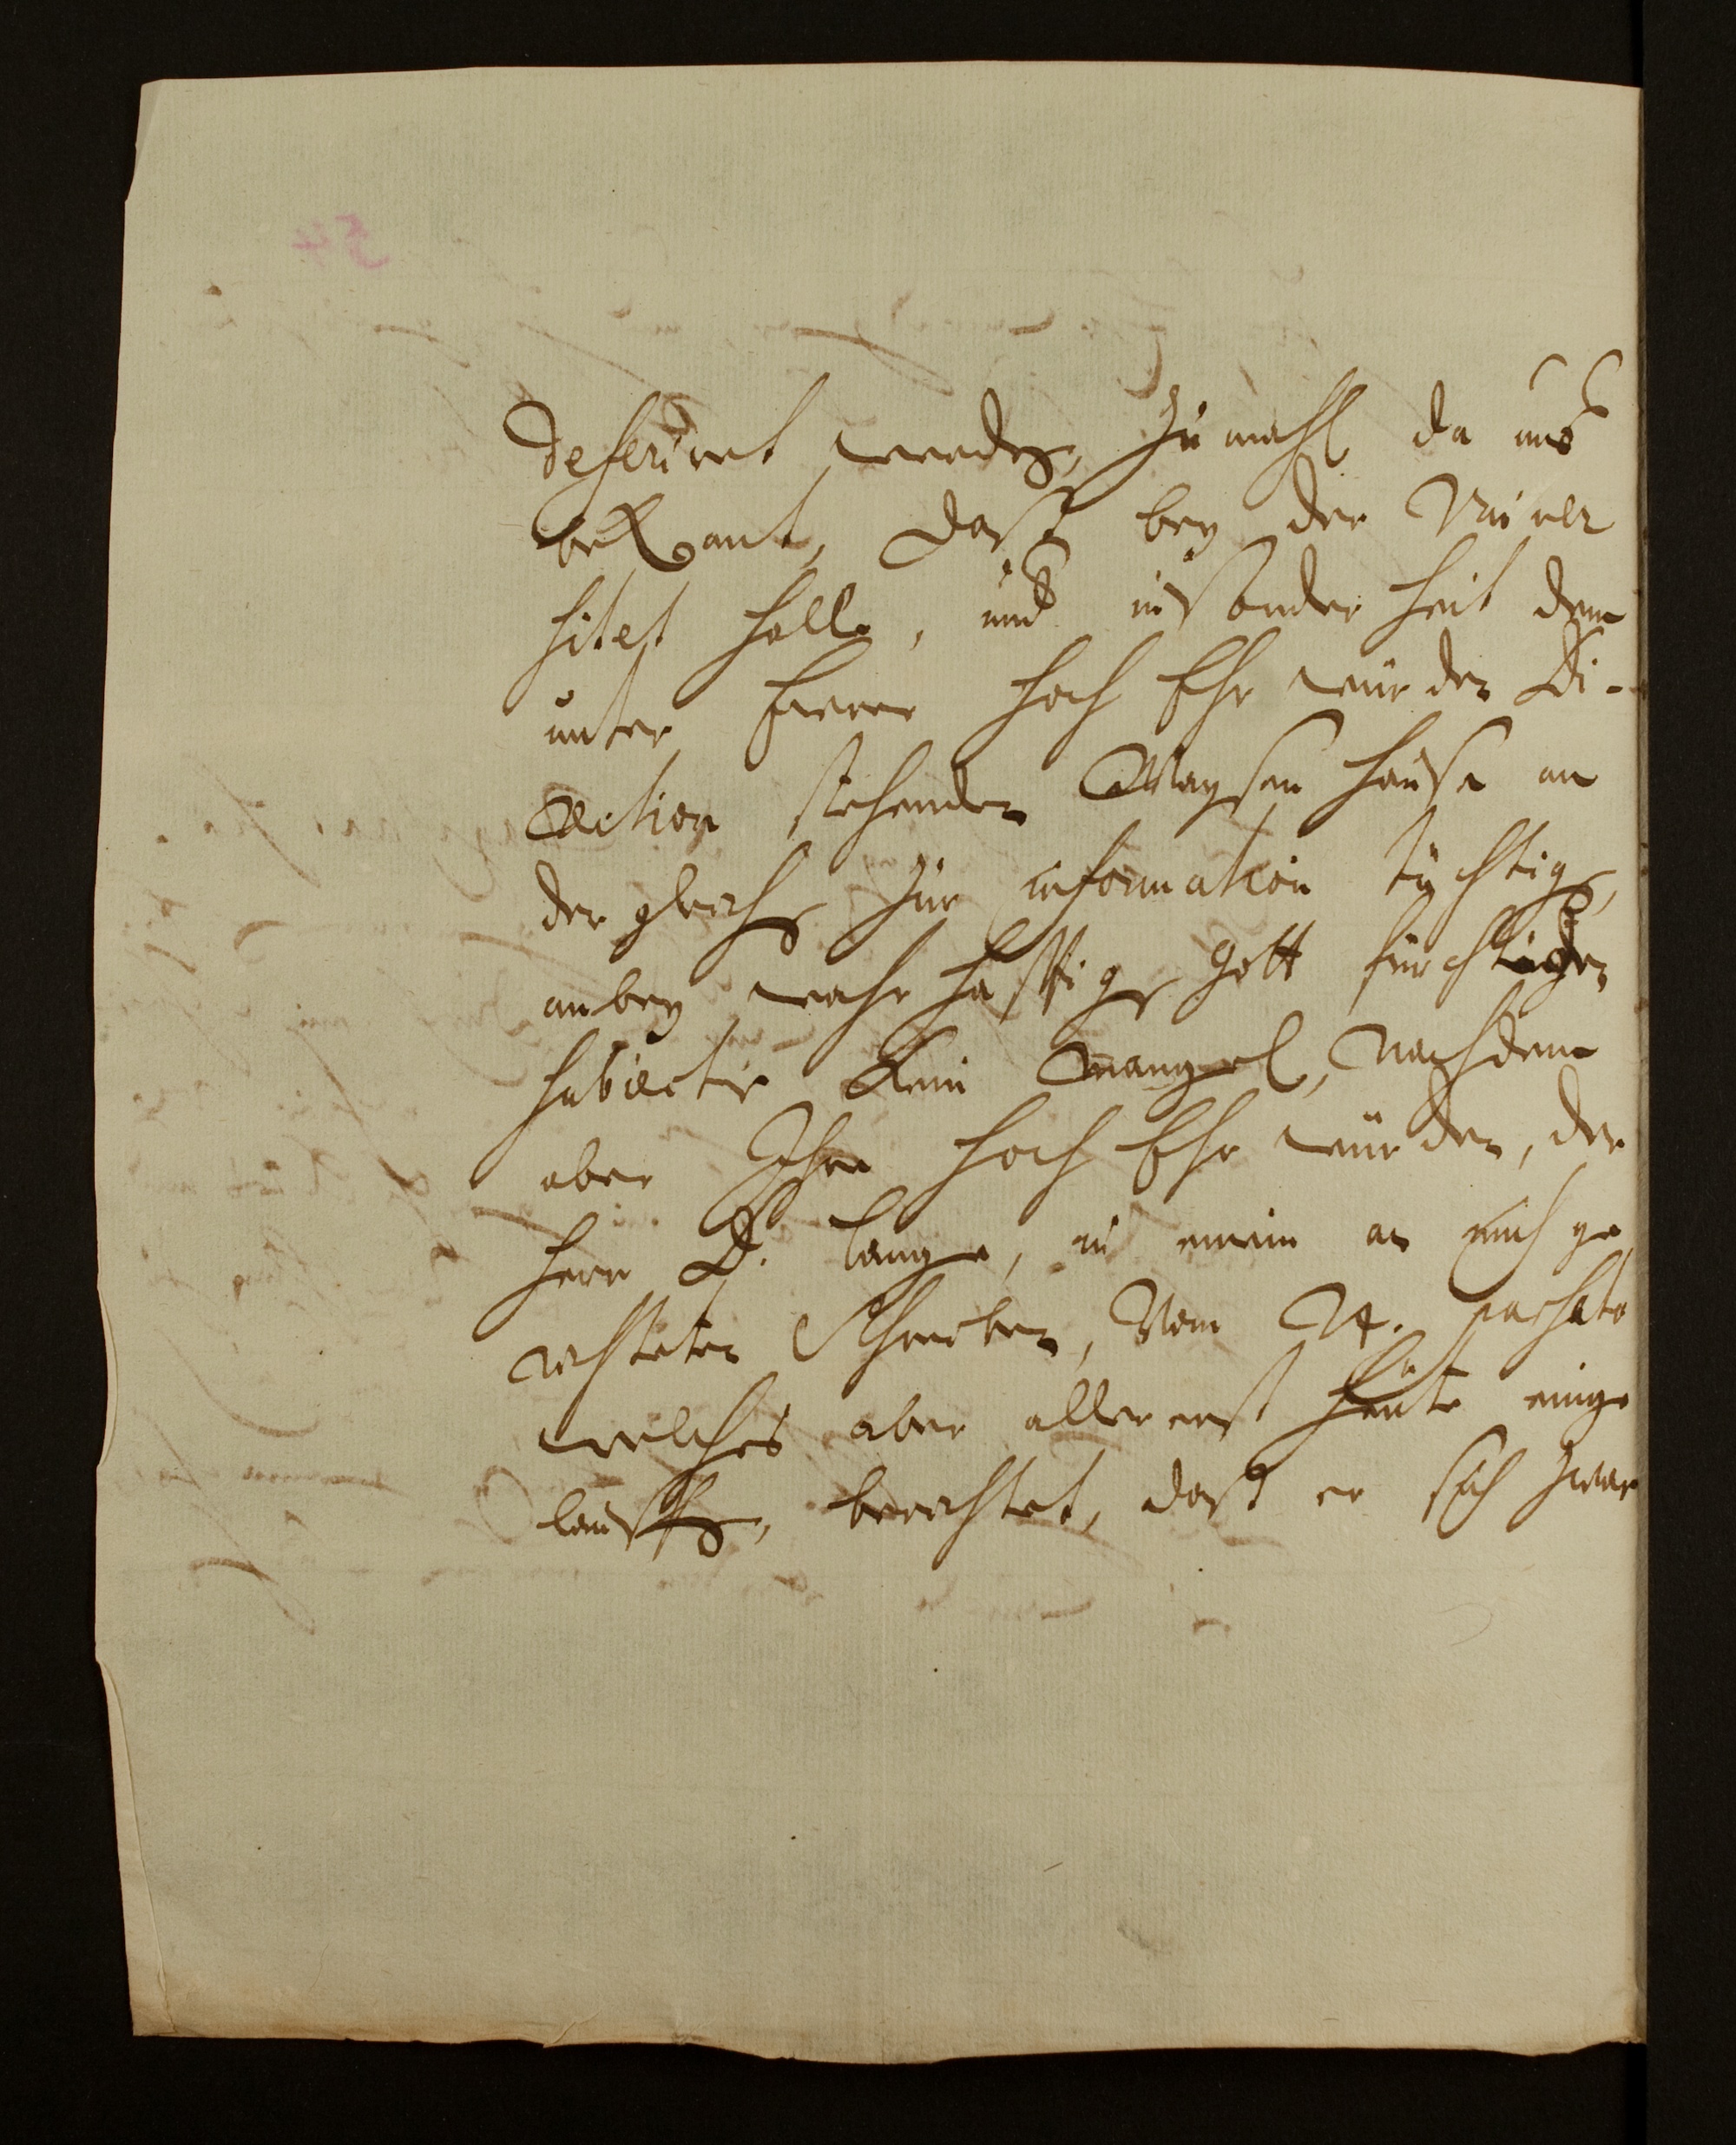 deferiret werden, zumahl da uns
bekant, daß bey der Univer
sitet Halle, und insonderheit dem
unter Eurer HochEhrwürden Di-
rection stehenden Waysenhause an
dergleichen zur information tüchtigen,
anbey wahrhafftig Gottfürchtigen
subiectis kein Mangel, Nachdem
aber Ihre HochEhrwürden, der
Herr D. Lange, in einem an mich ge
richteten Schreiben, vom passato
welches aber allererst heute einge
lauffen, berichtet, daß er sich zwar